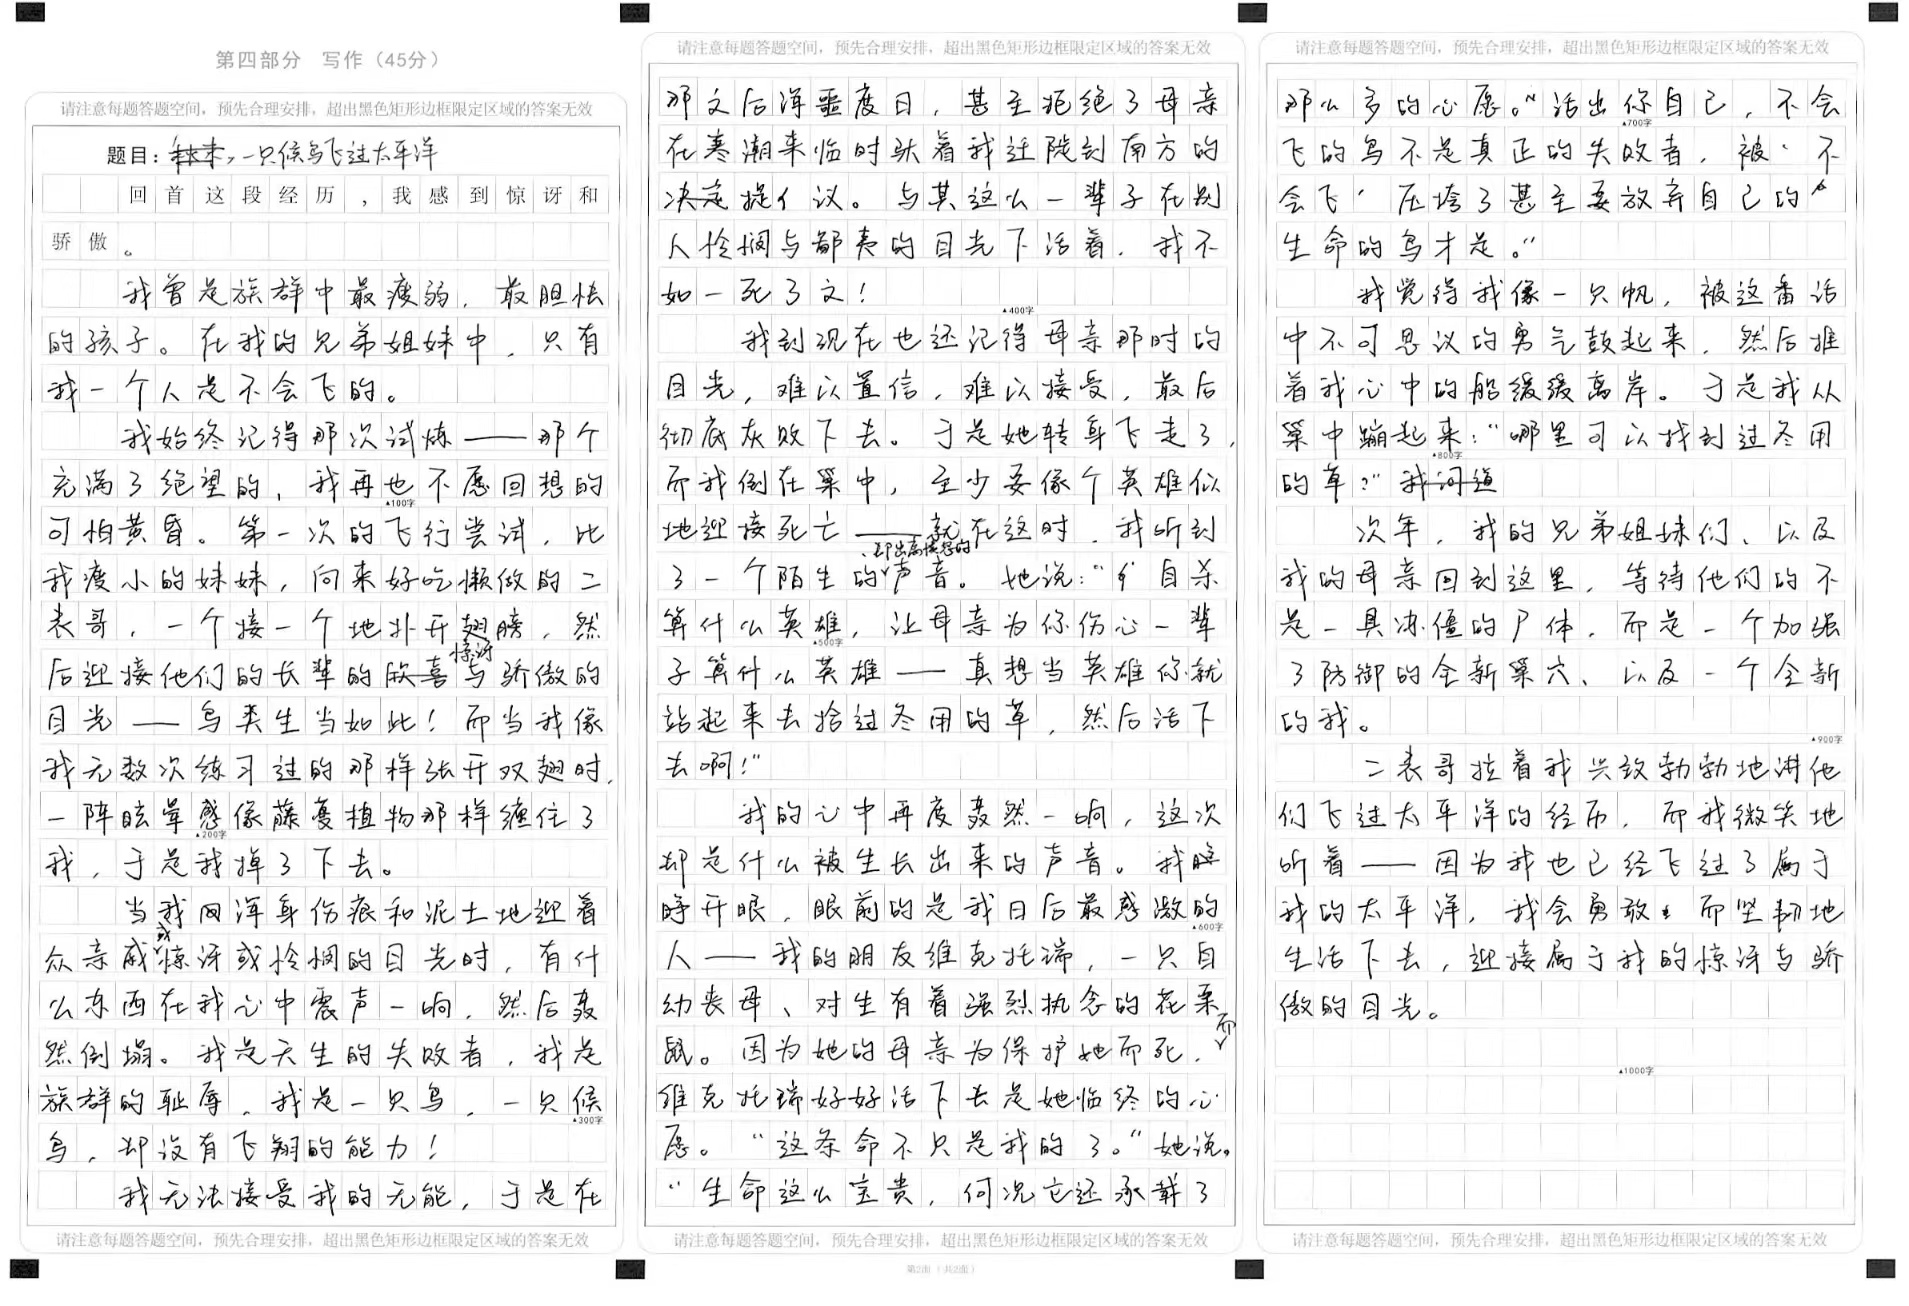 第四部分 写作（45分）
请注意每题答题空间，预先合理安排，超出黑色矩形边框限定区域的答案无效
题目：一只候鸟飞过太平洋
回首这段经历，我感到惊讶和
骄傲。
我曾是族群中最瘦弱，最胆怯
的孩子。在我的兄弟姐妹中，只有
我一个人是不会飞的。
我始终记得那次试炼——那个
充满了绝望的，我再也不愿回想的
▲100字
可怕黄昏。第一次的飞行尝试，比
我瘦小的妹妹，向来好吃懒做的二
表哥，一个接一个地扑开翅膀，然
后迎接他们的长辈的惊讶与骄傲的
目光——鸟类生当如此！而当我像
我无数次练习过的那样张开双翅时，
一阵眩晕感像藤蔓植物那样缠住了
▲200字
我，于是我掉了下去。
当我浑身伤痕和泥土地迎着
众亲戚或惊讶或怜悯的目光时，有什
么东西在我心中震声一响，然后轰
然倒塌。我是天生的失败者，我是
族群的耻辱，我是一只鸟，一只候
▲300字
鸟，却没有飞翔的能力！
我无法接受我的无能，于是在
请注意每题答题空间，预先合理安排，超出黑色矩形边框限定区域的答案无效
请注意每题答题空间，预先合理安排，超出黑色矩形边框限定区域的答案无效
那之后浑噩度日，甚至拒绝了母亲
在寒潮来临时驮着我迁徙到南方的
提议。与其这么一辈子在别
人怜悯与鄙夷的目光下活着，我不
如一死了之！
▲400字
我到现在也还记得母亲那时的
目光，难以置信，难以接受，最后
彻底灰败下去。于是她转身飞走了，
而我倒在巢中，至少要像个英雄似
地迎接死亡——就在这时，我听到
了一个陌生的、却出离愤怒的声音。她说：“自杀
算什么英雄，让母亲为你伤心一辈
▲500字
子算什么英雄——真想当英雄你就
站起来去拾过冬用的草，然后活下
去啊！”
我的心中再度轰然一响，这次
却是什么被生长出来的声音。我
睁开眼，眼前的是我日后最感激的
▲600字
人——我的朋友维克托瑞，一只自
幼丧母、对生有着强烈执念的花栗
鼠。因为她的母亲为保护她而死，而
维克托瑞好好活下去是她临终的心
愿。“这条命不只是我的了。”她说。
“生命这么宝贵，何况它还承载了
请注意每题答题空间，预先合理安排，超出黑色矩形边框限定区域的答案无效
第2面（共2面）
请注意每题答题空间，预先合理安排，超出黑色矩形边框限定区域的答案无效
那么多的心愿。”活出你自己，不会
▲700字
飞的鸟不是真正的失败者，被‘不
会飞’压垮了甚至要放弃自己的
生命的鸟才是。”
我觉得我像一只帆，被这番话
中不可思议的勇气鼓起来，然后推
着我心中的船缓缓离岸。于是我从
巢中蹦起来：“哪里可以找到过冬用
▲800字
的草？”
次年，我的兄弟姐妹们、以及
我的母亲回到这里，等待他们的不
是一具冻僵的尸体，而是一个加强
了防御的全新巢穴、以及一个全新
的我。
▲900字
二表哥拉着我兴致勃勃地讲他
们飞过太平洋的经历，而我微笑地
听着——因为我也已经飞过了属于
我的太平洋，我会勇敢而坚韧地
生活下去，迎接属于我的惊讶与骄
傲的目光。
▲1000字
请注意每题答题空间，预先合理安排，超出黑色矩形边框限定区域的答案无效